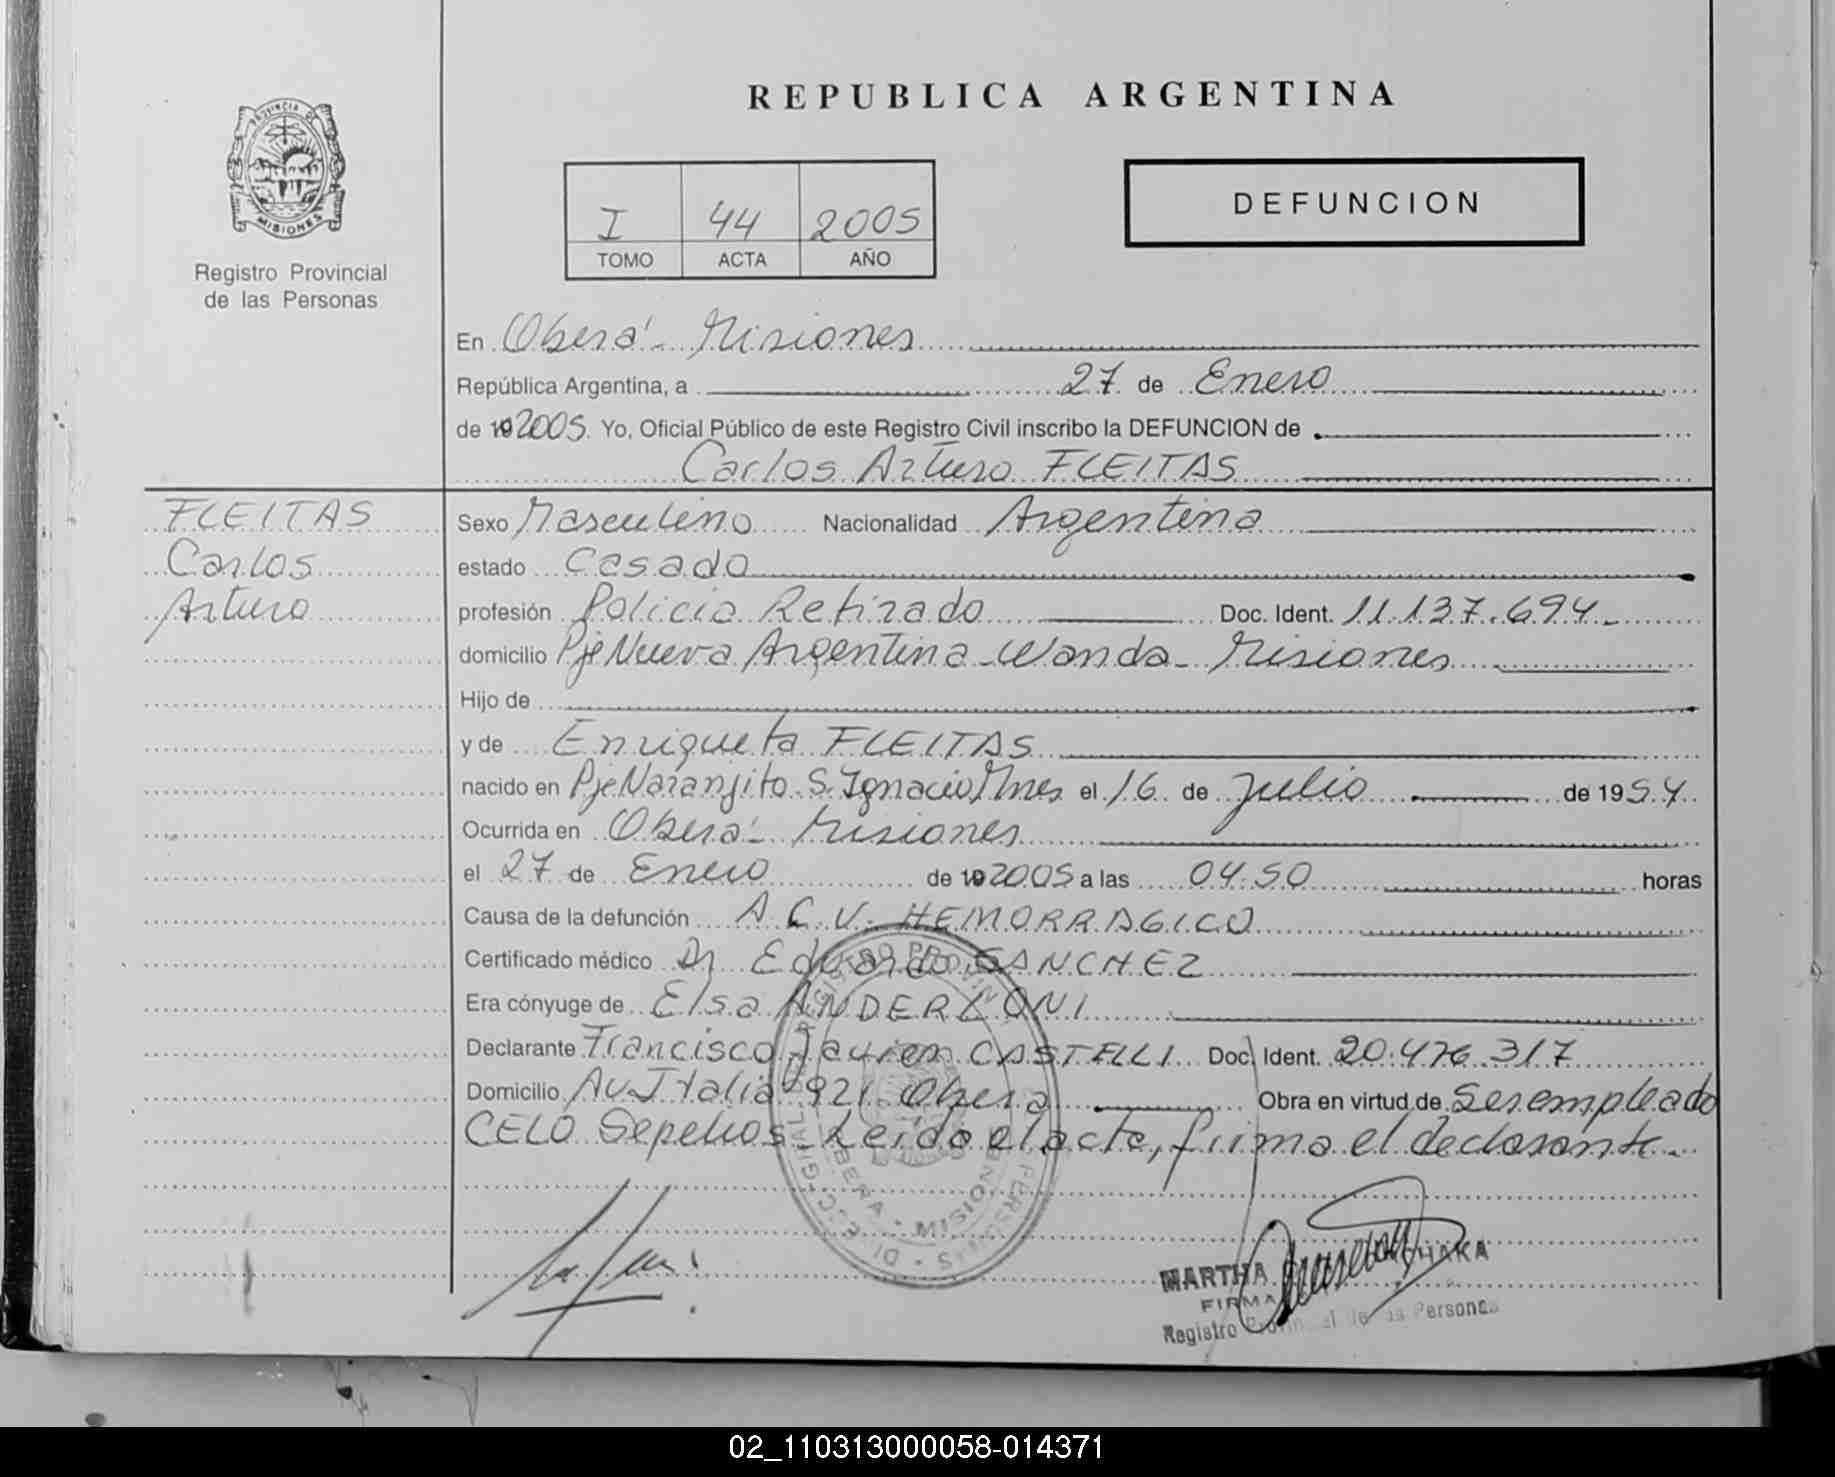 REPUBLICA ARGENTINA
PROVINCIA DE
MISIONES
Registro Provincial
de las Personas
I 44 2005
TOMO ACTA AÑO
DEFUNCION
En Oberá - Misiones
República Argentina, a 27 de Enero
de 19 2005. Yo, Oficial Público de este Registro Civil inscribo la DEFUNCION de
Carlos Arturo FLEITAS
FLEITAS
Carlos
Arturo
Sexo Masculino Nacionalidad Argentina
estado Casado
profesión Policia Retirado Doc. Ident. 11.137.694.-
domicilio Pje Nueva Argentina - Wanda - Misiones
Hijo de
y de Enriqueta FLEITAS
nacido en Pje Naranjito S. Ignacio Mnes el 16 de Julio de 1954
Ocurrida en Oberá - Misiones
el 27 de Enero de 19 2005 a las 04:50 horas
Causa de la defunción A.C.V. HEMORRAGICO
Certificado médico Dr Eduardo SANCHEZ
Era cónyuge de Elsa ANDERLONI
Declarante Francisco Javier CASTELLI Doc. Ident. 20.476.317
Domicilio Av Italia 921 Oberá Obra en virtud de Ser empleado
CELO Sepelios - Leida el acta, firma el declarante.-
OBERA - MISIONES
MARTHA
FIRMA
Registro Provincial de las Personas
02_110313000058-014371